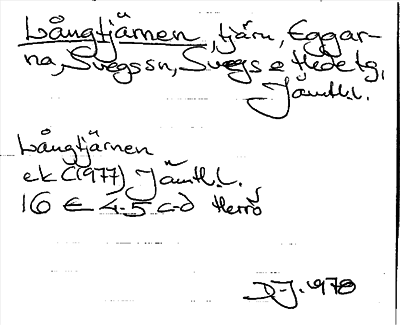 Långtjärnen, tjärn, Eggar-
na, Svegs sn, Svegs o Hede tg,
Jämtl.l.
Långtjärnen
ek C(1977) Jämtl.l.
16 E 4-5 c-d Herrö
D-J. 1978